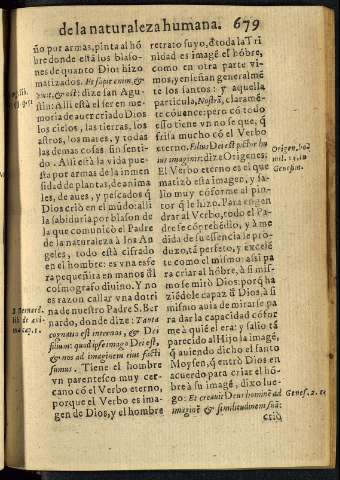 de la naturaleza humana. 679
ño por armas, pinta al hõ
bre donde està los blaso-
nes de quanto Dios hizo
matizados. Et sapit enim, &
viuit, & est: dize san Agu-
stin: Alli està el ser en me-
moria de auer criado Dios
los cielos, las tierras, los
astros, los mares, y todas
las demas cosas sin senti-
do. Alli està la vida pue-
sta por armas de la inmen
sidad de plantas, de anima
les, de aues, y pescados q̃
Dios criò en el mũdo: alli
la sabiduria por blason de
la que comunicò el Padre
de la naturaleza à los An
geles, todo està cifrado
en el hombre: es vna esfe
ra pequeñita en manos ðl
cosmografo diuino. Y no
es razon callar vna dotri
na de nuestro Padre S. Ber
nardo, donde dize: Tanta
cognatio est internos, & Dei
filium: quod ipse imago Dei est,
& nos ad imaginem eius facti
sumus. Tiene el hombre
vn parentesco muy cer-
cano cõ el Verbo eterno,
porque el Verbo es ima-
gen de Dios, y el hombre
S. Bernard.
cap. 1.
retrato suyo, ð toda la Tri
nidad es imagẽ el hõbre,
como en otra parte vi-
mos, y enseñan generalmẽ
te los santos: y aquella
particula, Nostrã, claramẽ-
te cõuence: pero cõ todo
esso tiene vn no se que, q̃
frisa mucho cõ el Verbo
eterno. Filius Dei est pictor hu
ius imaginis: dize Origenes:
El Verbo eterno es el que
matizò esta imagen, y sa-
lio muy cõforme al pin-
tor q̃ le hizo. Para engen
drar al Verbo, todo el Pa-
dre se cõprehẽdio, y à me
dida de su essencia le pro-
duxo, tã perfeto, y excelẽ
te como el mismo: assi pa
ra criar al hõbre, à si mis-
mo se mirò Dios: porq̃ ha
ziẽdole capaz ð Dios, à si
mismo auia de mirarse pa
ra dar la capacidad cõfor
me à quiẽ el era: y salio tã
parecido al Hijo la imagẽ,
q̃ auiendo dicho el santo
Moysen, q̃ entrò Dios en
acuerdo para criar el hõ-
bre à su imagẽ, dixo lue-
go: Et creauit Deus hominẽ ad
imaginẽ & similitudinem suã:
criò
Origen. ho
mil. 1. in
Genesim.
Genes. 2.